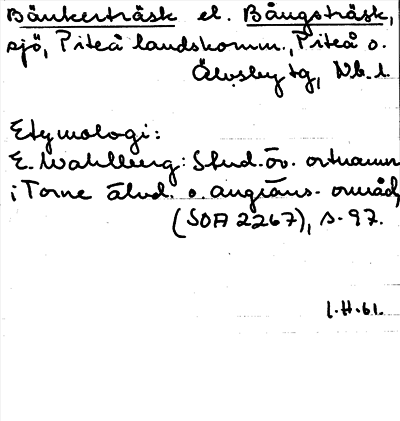 Bänkerträsk el. Bångsträsk,
sjö, Piteå landskomm., Piteå o.
Älvsby tg, Nb. l.
Etymologi:
E. Wahlberg: Stud. öv. ortnamn
i Torne älvd. o. angräns. område,
(SOA 2267), s. 97.
I.H.61.